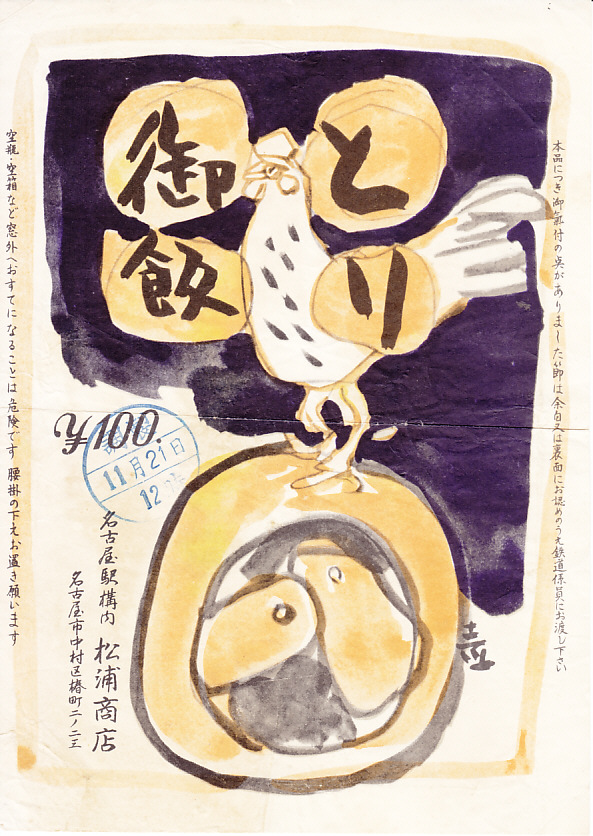 とり
御飯
本品につき御氣付の点がありました節は余白又は裏面にお認めのうえ鉄道係員にお渡し下さい
¥100.
11月21日
12時
名古屋駅構内 松浦商店
名古屋市中村区椿町二ノ二三
空瓶・空箱など窓外へおすてになることは危険です 腰掛の下えお置き願います